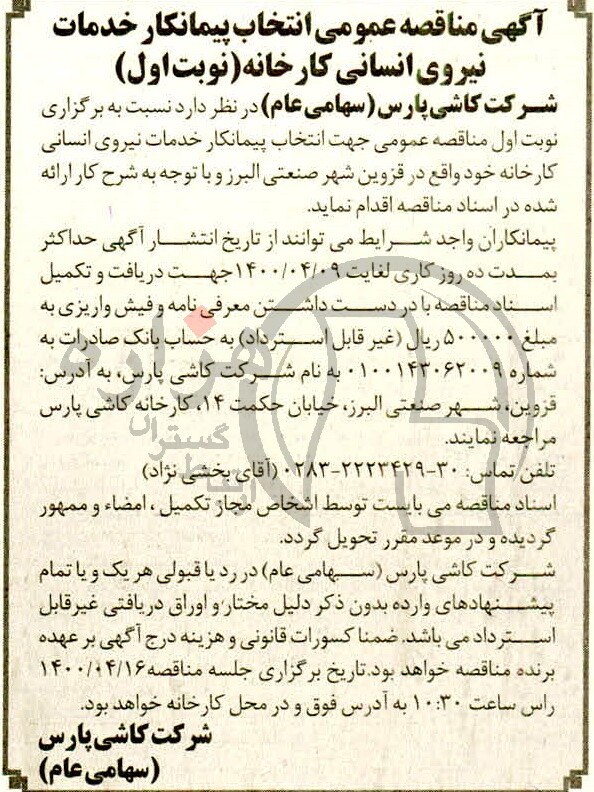 آگهی مناقصه عمومی انتخاب پیمانکار خدمات
نیروی انسانی کارخانه (نوبت اول)
شرکت کاشی پارس (سهامی عام) در نظر دارد نسبت به برگزاری
نوبت اول مناقصه عمومی جهت انتخاب پیمانکار خدمات نیروی انسانی
کارخانه خود واقع در قزوین شهر صنعتی البرز و با توجه به شرح کار ارائه
شده در اسناد مناقصه اقدام نماید.
پیمانکاران واجد شرایط می توانند از تاریخ انتشار آگهی حداکثر
بمدت ده روز کاری لغایت ۱۴۰۰/۰۴/۰۹ جهت دریافت و تکمیل
اسناد مناقصه با در دست داشتن معرفی نامه و فیش واریزی به
مبلغ ۵۰۰۰۰۰ ریال (غیر قابل استرداد) به حساب بانک صادرات به
شماره ۰۱۰۰۱۴۳۰۶۲۰۰۹ به نام شرکت کاشی پارس، به آدرس:
قزوین، شهر صنعتی البرز، خیابان حکمت ۱۴، کارخانه کاشی پارس
مراجعه نمایند.
تلفن تماس: ۳۰-۰۲۸۳-۲۲۲۳۴۲۹ (آقای بخشی نژاد)
اسناد مناقصه می بایست توسط اشخاص مجاز تکمیل، امضاء و ممهور
گردیده و در موعد مقرر تحویل گردد.
شرکت کاشی پارس (سهامی عام) در رد یا قبولی هر یک و یا تمام
پیشنهادهای وارده بدون ذکر دلیل مختار و اوراق دریافتی غیرقابل
استرداد می باشد. ضمنا کسورات قانونی و هزینه درج آگهی بر عهده
برنده مناقصه خواهد بود. تاریخ برگزاری جلسه مناقصه ۱۴۰۰/۰۴/۱۶
راس ساعت ۱۰:۳۰ به آدرس فوق و در محل کارخانه خواهد بود.
شرکت کاشی پارس
(سهامی عام)
هزاره
گستران